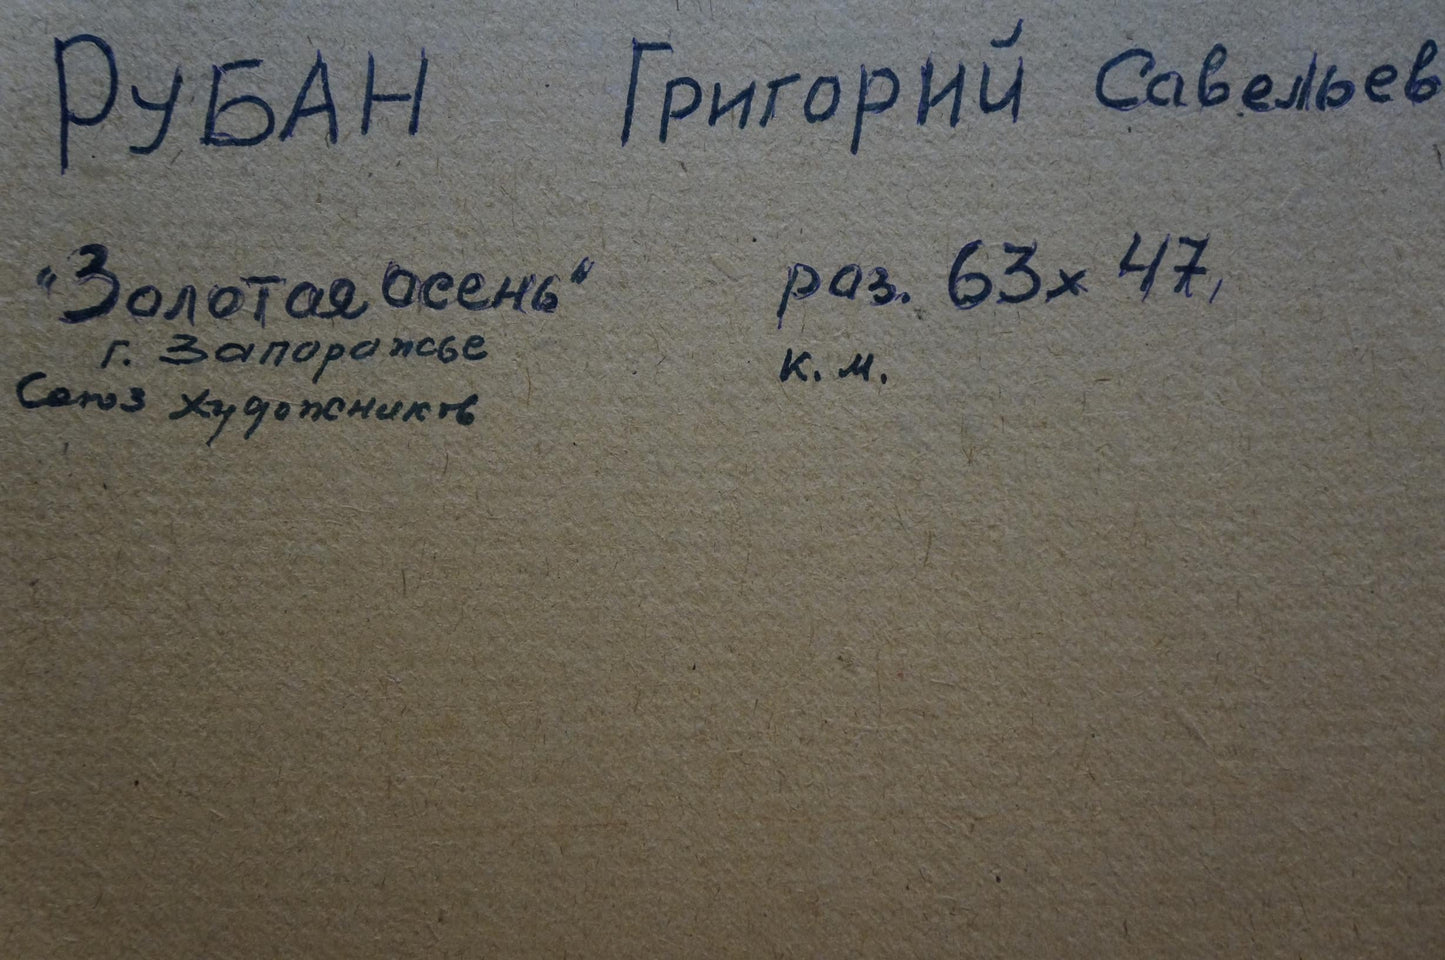 РУБАН Григорий Савельев
"Золотая осень" раз. 63х47,
г. Запоражье к. м.
Союз художников